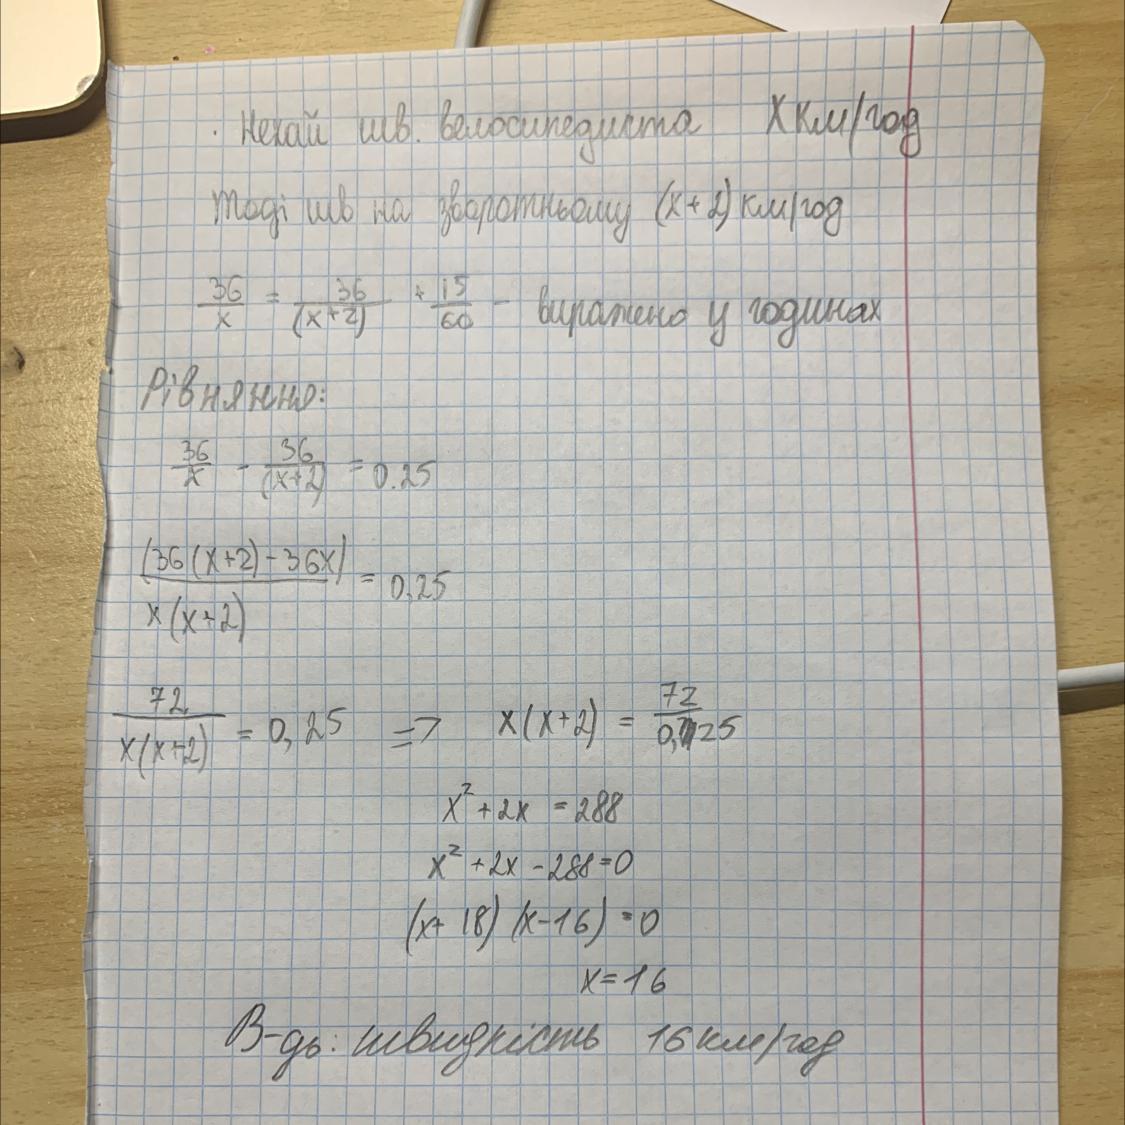 Нехай шв. велосипедиста X км/год
Тоді шв на зворотньому (x+2) км/год
36/x = 36/(x+2) + 15/60 - виражено у годинах
Рівняння:
36/x - 36/(x+2) = 0.25
(36(x+2)-36x)/x(x+2) = 0,25
72/x(x+2) = 0,25 => x(x+2) = 72/0,25
x² + 2x = 288
x² + 2x - 288 = 0
(x+ 18) (x-16) = 0
x = 16
В-дь: швидкість 16 км/год